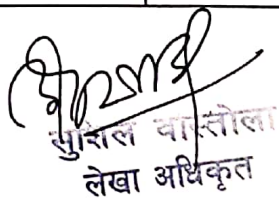 सुशिल वास्तोला
लेखा अधिकृत